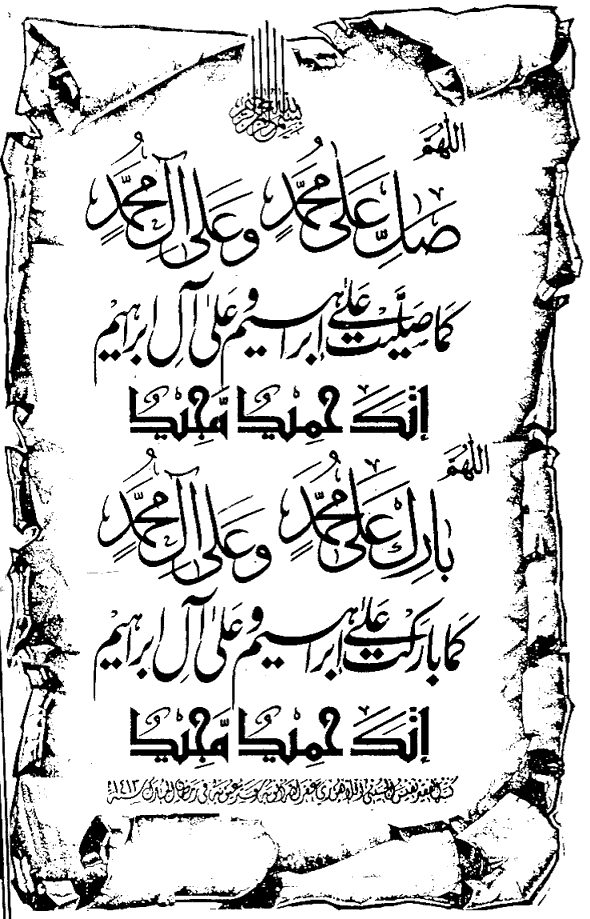 بسم الله الرحمن الرحيم
اللّٰهُمَّ
صَلِّ عَلٰى مُحَمَّدٍ وَعَلٰى آلِ مُحَمَّدٍ
كَمَا صَلَّيْتَ عَلٰى إِبْرَاهِيمَ وَعَلٰى آلِ إِبْرَاهِيمَ
إِنَّكَ حَمِيدٌ مَّجِيدٌ
اللّٰهُمَّ
بَارِكْ عَلٰى مُحَمَّدٍ وَعَلٰى آلِ مُحَمَّدٍ
كَمَا بَارَكْتَ عَلٰى إِبْرَاهِيمَ وَعَلٰى آلِ إِبْرَاهِيمَ
إِنَّكَ حَمِيدٌ مَّجِيدٌ
نفيس الحسيني اللاهوري غفر الله في رمضان المبارك سنة ١٤١٣